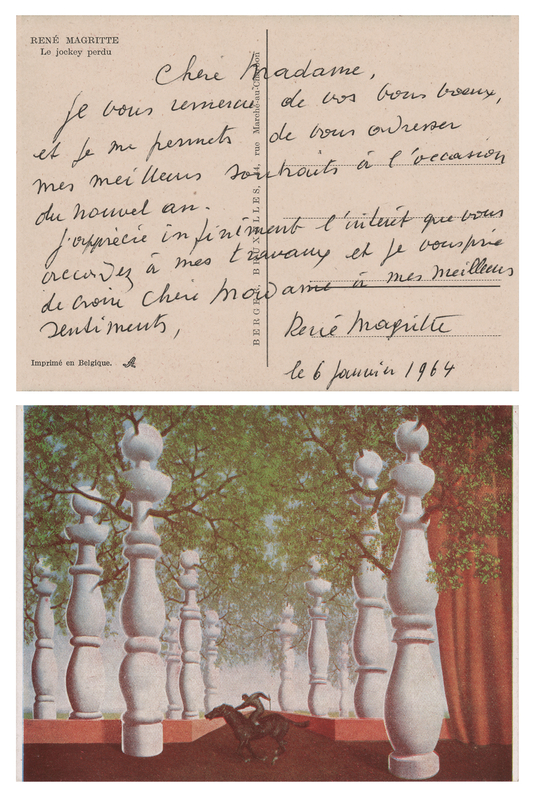 RENÉ MAGRITTE
Le jockey perdu
Chère Madame,
Je vous remercie de vos bons voeux,
et je me permets de vous adresser
mes meilleurs souhaits à l'occasion
du nouvel an.
J'apprécie infiniment l'intérêt que vous
accordez à mes travaux et je vous prie
de croire Chère Madame à mes meilleurs
sentiments,
René Magritte
le 6 Janvier 1964
Imprimé en Belgique.
BERGER, BRUXELLES, 4, rue Marché-au-Charbon